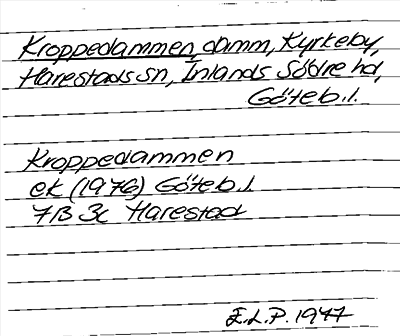 Kroppedammen, damm, Kyrkeby,
Harestads sn, Inlands Södre hd,
Göteb. l.
Kroppedammen
ek (1976) Göteb. l.
7B 3c Harestad
E.L.P. 1977